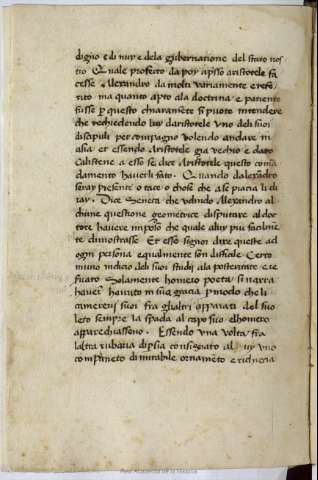 digno e di nuy e dela gubernatione del stato nos
tro Quale profecto da poy apsso aristotele fa
cesse Alexandro da molti variamente e refe
rito ma quanto apto ala doctrina e patiente
fusse p questo chiaramete si puote intendere
che rechiedendo luy daristotele uno deli suoi
discipuli per compagno volendo andare in
asia et essendo Aristotele gia vechio e dato
Calistene a esso se dice Aristotele questo coma
damento haverli fato. Quando da lexadro
seray presente o tace o chose che a se piacia li di
ray. Dice Seneca che udindo Alexandro al
chune questione geometrice disputare al doc
tore havere imposo che quale a luy piu facilme
te dimostrasse Et esso signor dixe queste ad
ogni persona equalmente son difficile Certo
muno indicio deli suoi studij ala posteritate e re
fuato Solamente homero poeta si narra
haver havuto in sua gracia p modo che li
camereri suoi fra gli altri apparati del suo
leto sempre la spada al capo suo e lhomero
apparechiasseno. Essendo una volta fra
laltra robaria di psia consignato al uno
de mirabile ornameto e richecia
Real Academia de la Historia